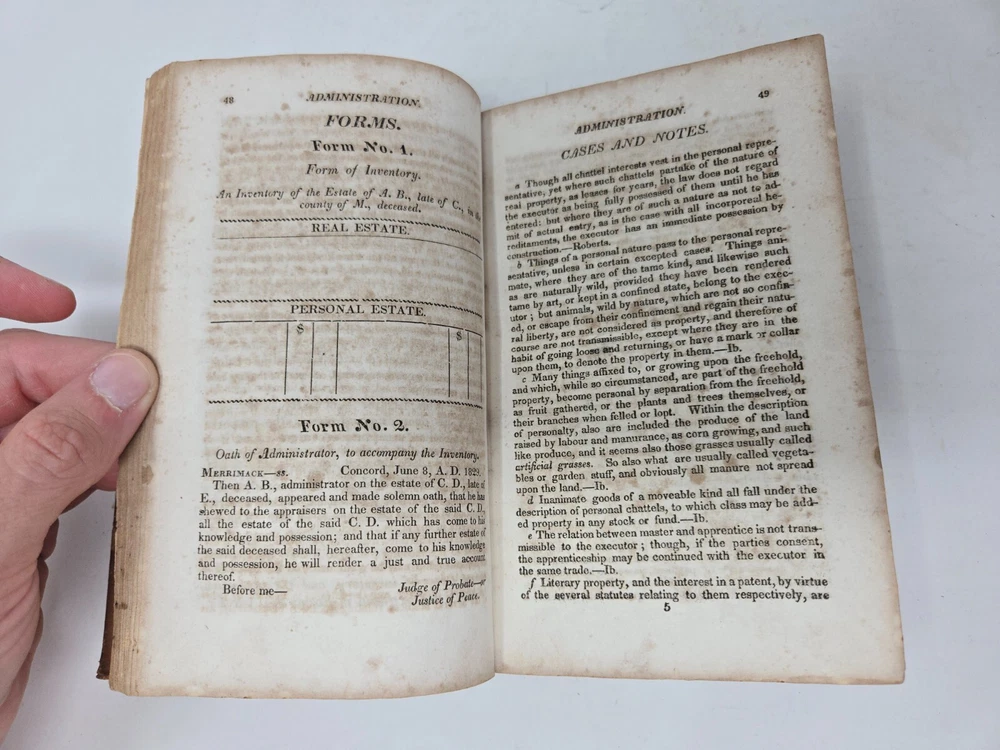 48
ADMINISTRATION.
FORMS.
Form No. 1.
Form of Inventory.
An Inventory of the Estate of A. B., late of C., in the
county of M., deceased.
REAL ESTATE.
PERSONAL ESTATE.
$ $
Form No. 2.
Oath of Administrator, to accompany the Inventory.
MERRIMACK—ss. Concord, June 8, A. D. 1829.
Then A. B., administrator on the estate of C. D., late of
E., deceased, appeared and made solemn oath, that he has
shewed to the appraisers on the estate of the said C. D.,
all the estate of the said C. D. which has come to his
knowledge and possession; and that if any further estate of
the said deceased shall, hereafter, come to his knowledge
and possession, he will render a just and true account
thereof.
Before me—
Judge of Probate—or
Justice of Peace.
49
ADMINISTRATION.
CASES AND NOTES.
a Though all chattel interests vest in the personal repre-
sentative, yet where such chattels partake of the nature of
real property, as leases for years, the law does not regard
the executor as being fully possessed of them until he has
entered: but where they are of such a nature as not to ad-
mit of actual entry, as is the case with all incorporeal he-
reditaments, the executor has an immediate possession by
construction.—Roberts.
b Things of a personal nature pass to the personal repre-
sentative, unless in certain excepted cases. Things ani-
mate, where they are of the tame kind, and likewise such
as are naturally wild, provided they have been rendered
tame by art, or kept in a confined state, belong to the exec-
utor; but animals, wild by nature, which are not so confin-
ed, or escape from their confinement and regain their natu-
ral liberty, are not considered as property, and therefore of
course are not transmissible, except where they are in the
habit of going loose and returning, or have a mark or collar
upon them, to denote the property in them.—Ib.
c Many things affixed to, or growing upon the freehold,
and which, while so circumstanced, are part of the freehold
property, become personal by separation from the freehold,
as fruit gathered, or the plants and trees themselves, or
their branches when felled or lopt. Within the description
of personalty, also are included the produce of the land
raised by labour and manurance, as corn growing, and such
like produce, and it seems also those grasses usually called
artificial grasses. So also what are usually called vegeta-
bles or garden stuff, and obviously all manure not spread
upon the land.—Ib.
d Inanimate goods of a moveable kind all fall under the
description of personal chattels, to which class may be add-
ed property in any stock or fund.—Ib.
e The relation between master and apprentice is not trans-
missible to the executor; though, if the parties consent,
the apprenticeship may be continued with the executor in
the same trade.—Ib.
f Literary property, and the interest in a patent, by virtue
of the several statutes relating to them respectively, are
5